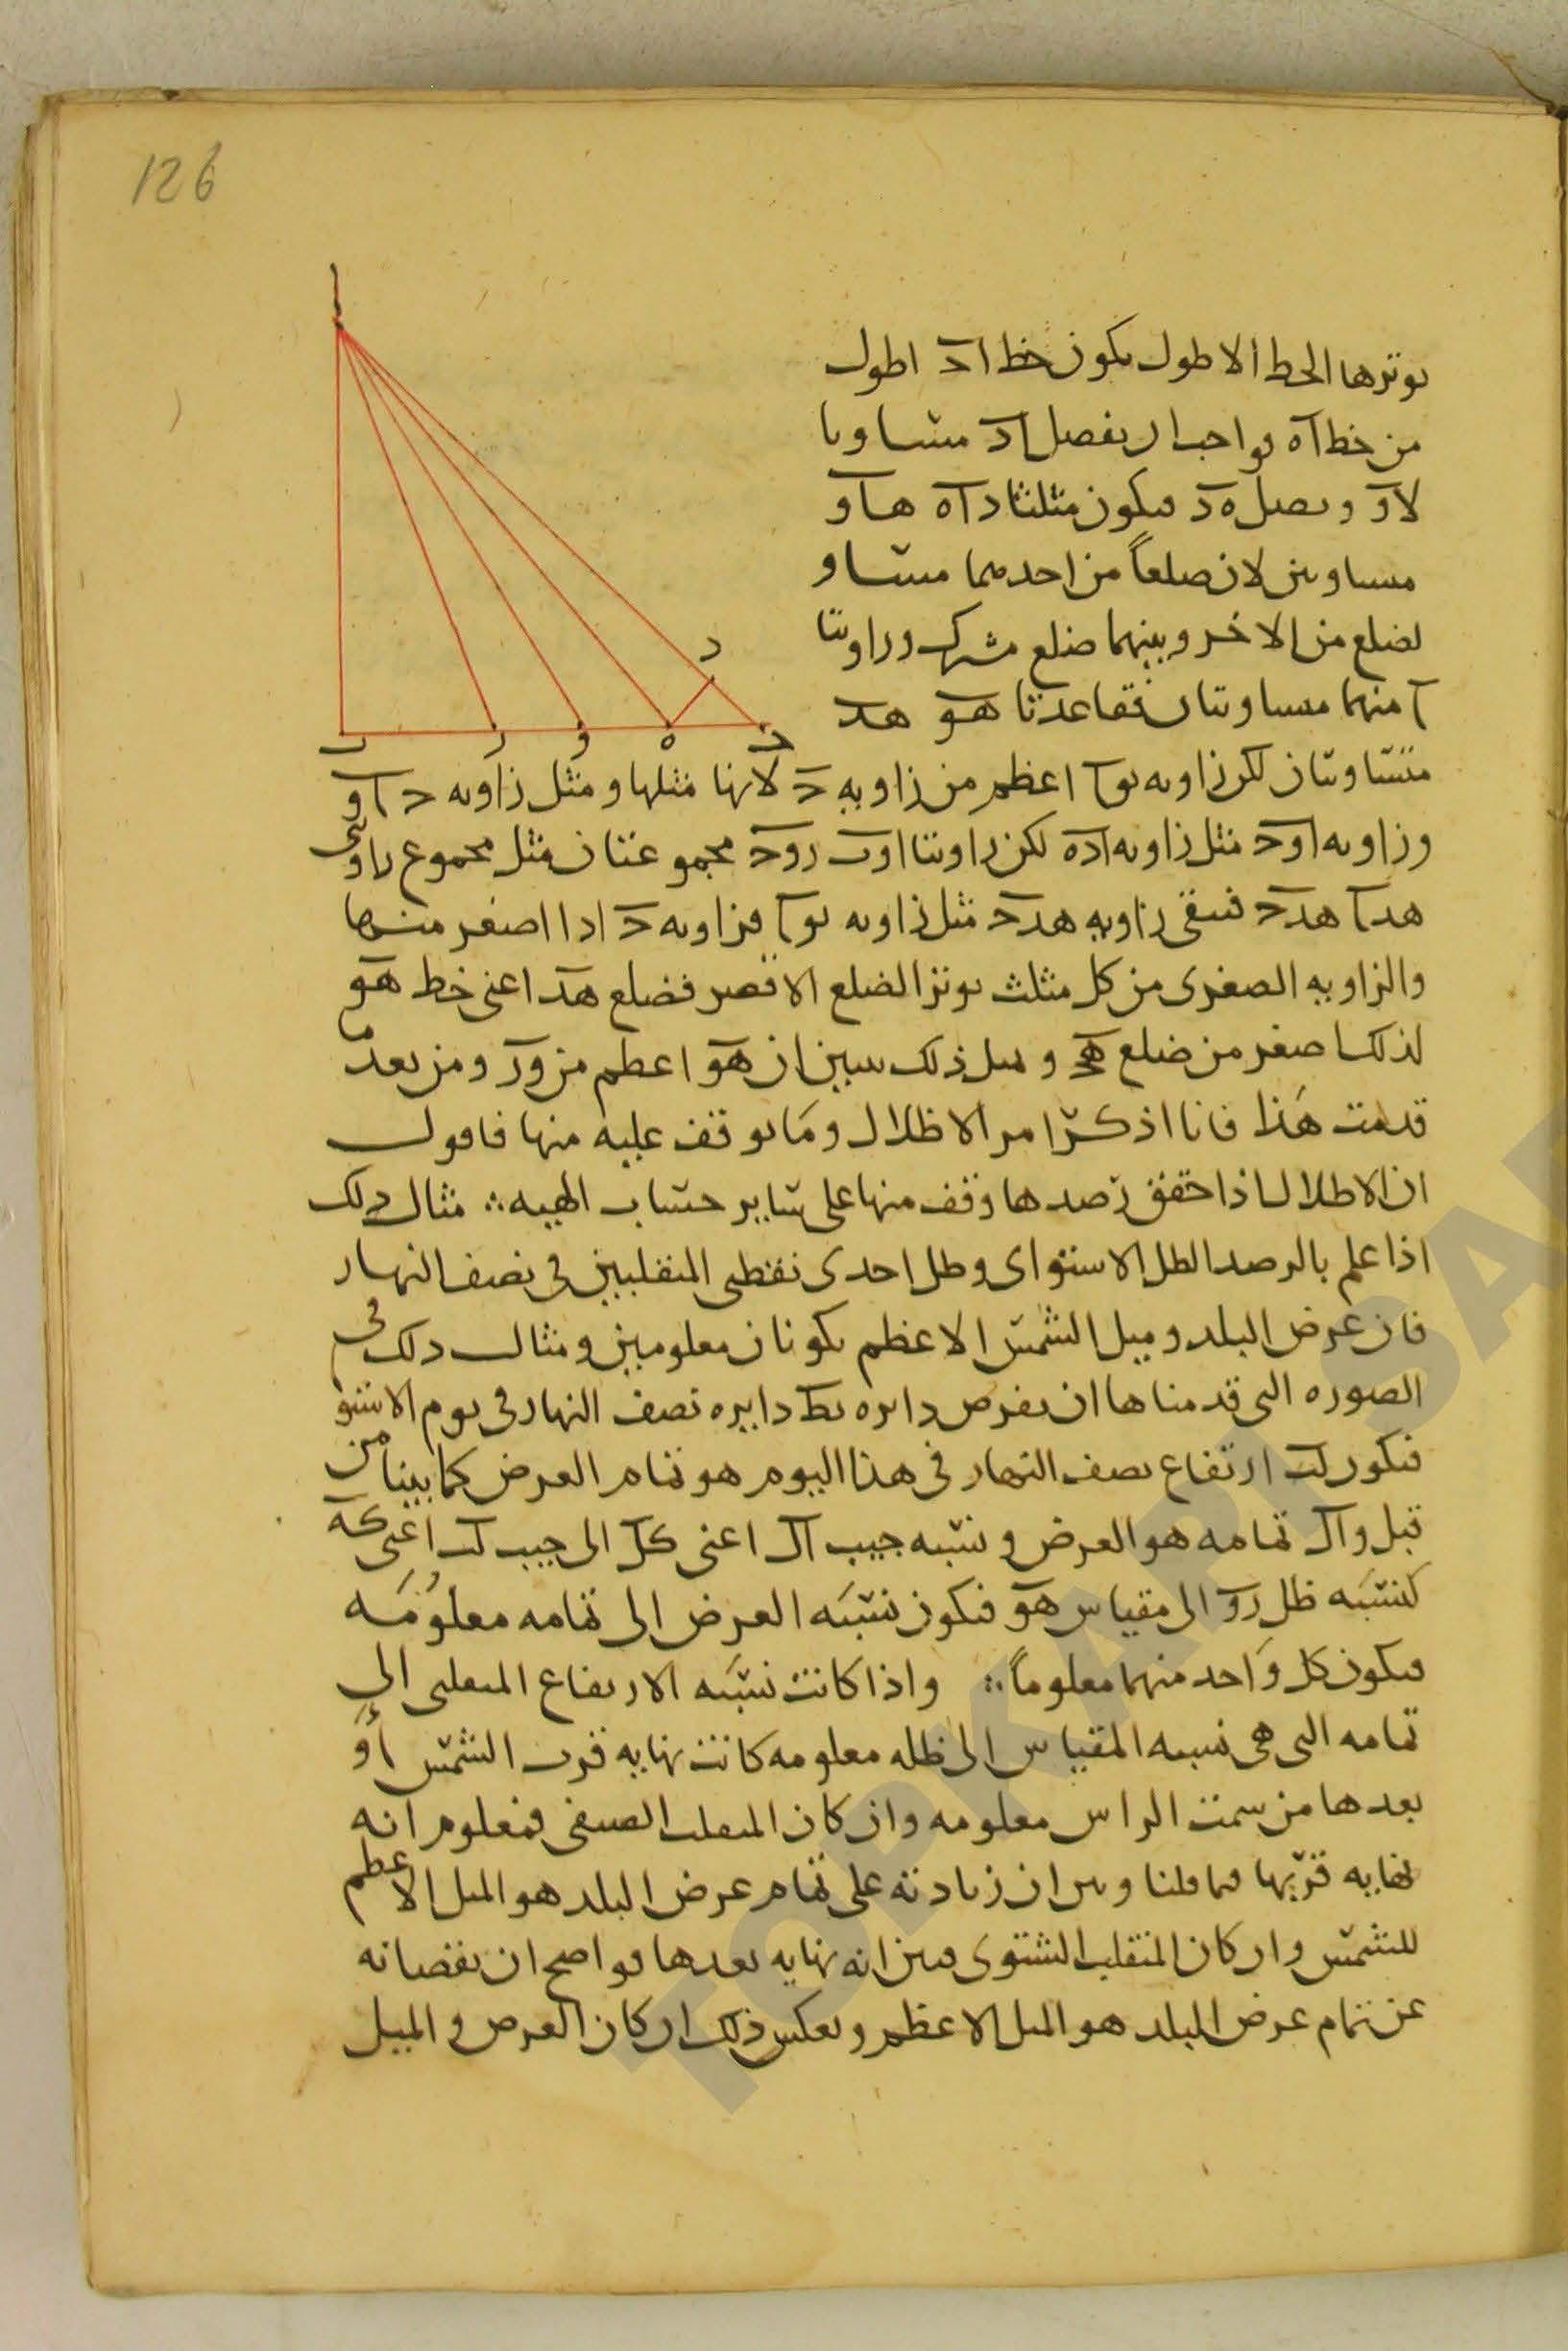 126
ا
يوترها الخط الاطول يكون خط اح اطول
من خط اه فواجب ان يفصل اد مساويا
لاو ويصل هد فيكون مثلثا داه هاو
متساويين لان ضلعا من احدهما مساو
لضلع من الاخر وبينهما ضلع مشترك وزاويتا
ا منهما متساويتان فقاعدتا هو هد
د
ب ز و ه ح
متساويتان لكن زاويه بوا اعظم من زاويه ح لانها مثلها ومثل زاويه حاو
وزاويه اوح مثل زاويه اده لكن زاويتا اوب روح مجموعتان مثل مجموع زاويتي
هدا هدح فتبقى زاويه هدح مثل زاويه بوا فزاويه ح اذا اصغر منها
والزاويه الصغرى من كل مثلث يوترها الضلع الاقصر فضلع هد اعنى خط هو
لذلك اصغر من ضلع هح ومثل ذلك يتبين ان هو اعظم من ور ومن بعد ما
قدمت هذا فانا اذكر امر الاظلال وما يوقف عليه منها فاقول
ان الاظلال اذا حقق رصدها وقف منها على ساير حساب الهيه ∴ مثال ذلك
اذا علم بالرصد الظل الاستواى وظل احدى نقطتى المنقلبين فى نصف النهار
فان عرض البلد وميل الشمس الاعظم يكونان معلومين ومثال ذلك فى
الصوره التى قدمناها ان نفرض دايره بط دايره نصف النهار فى يوم الاستوا
فيكون لب ارتفاع نصف النهار فى هذا اليوم هو تمام العرض كما بينا من
قبل وال تمامه هو العرض ونسبه جيب ال اعنى كل الى جيب لب اعنى كه
كنسبه ظل رو الى مقياس هو فيكون نسبه العرض الى تمامه معلومه
فيكون كل واحد منهما معلوما ∴ واذا كانت نسبه الارتفاع المنقلبى الى
تمامه التى هى نسبه المقياس الى ظله معلومه كانت نهايه قرب الشمس او
بعدها من سمت الراس معلومه وان كان المنقلب الصيفى فمعلوم انه
نهايه قربها فيما قلنا وبين ان زيادته على تمام عرض البلد هو الميل الاعظم
للشمس وان كان المنقلب الشتوى فبين انه نهايه بعدها فواضح ان نقصانه
عن تمام عرض البلد هو الميل الاعظم وبعكس ذلك ان كان العرض والميل
TOPKAPI SA